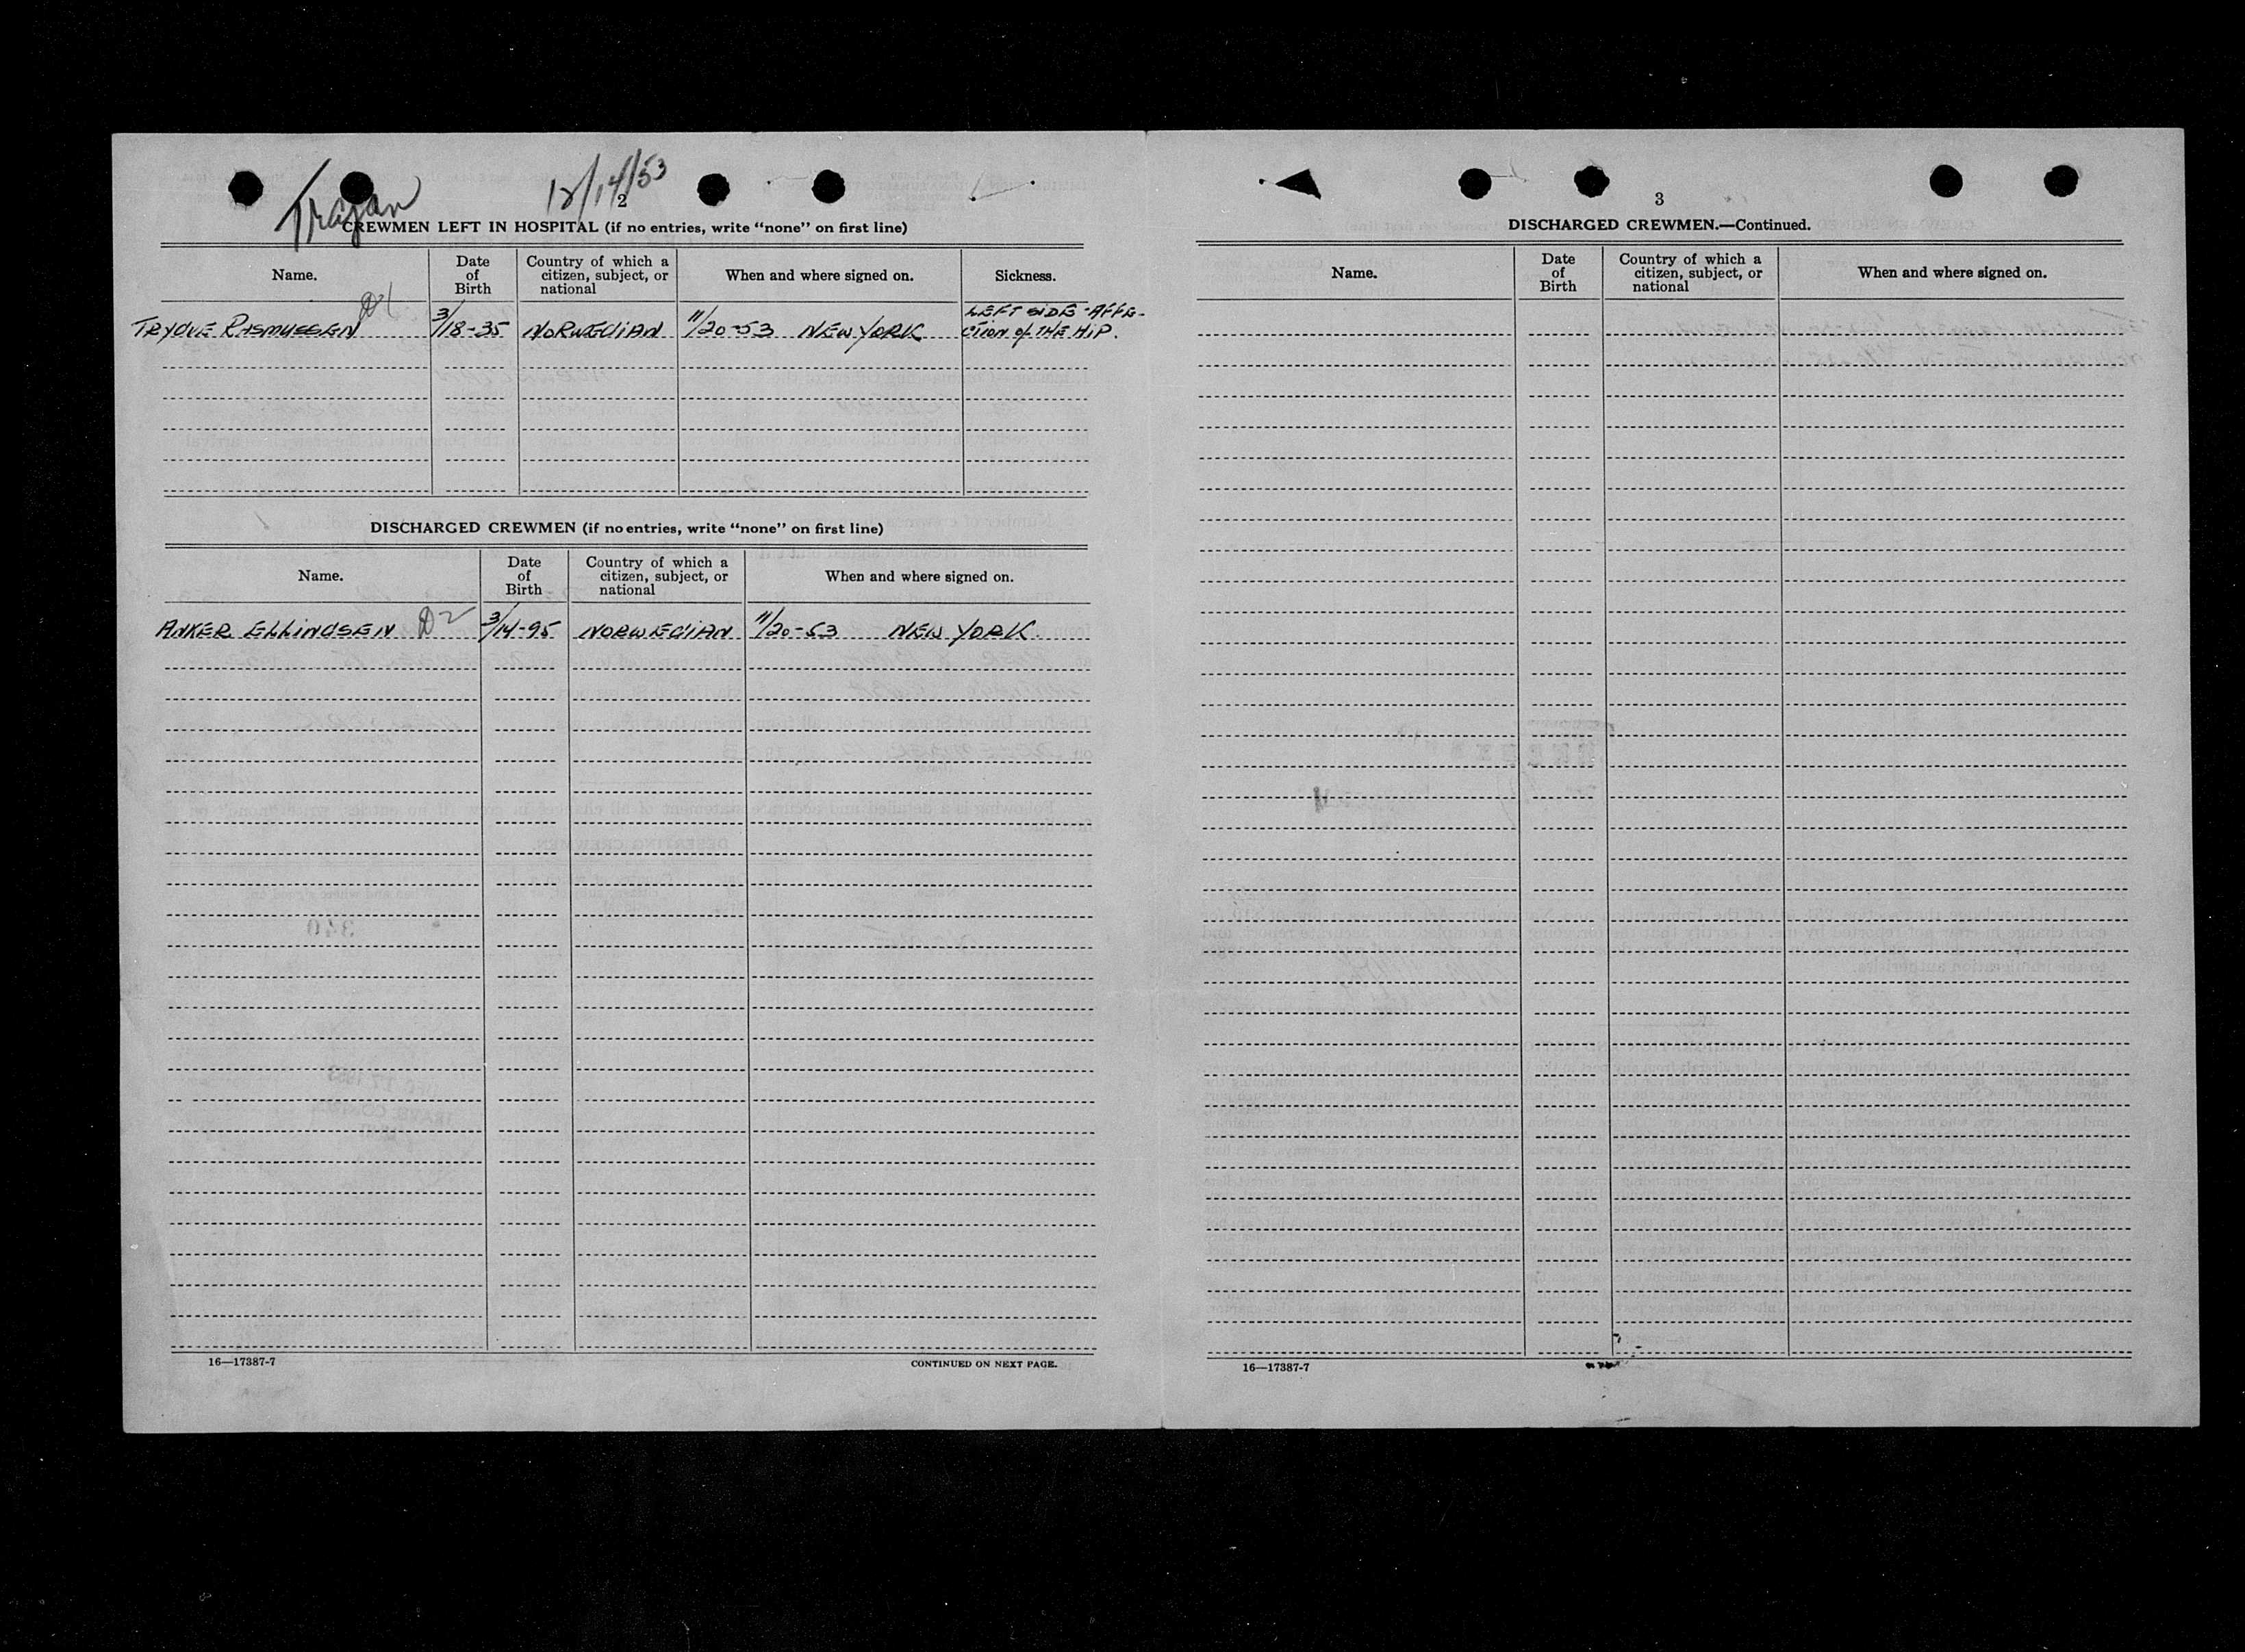 Trajan 12/14/53
2
CREWMEN LEFT IN HOSPITAL (if no entries, write “none” on first line)
Name. Date of Birth Country of which a citizen, subject, or national When and where signed on. Sickness.
TRYGVE RASMUSSEN D-1 3/18-35 NORWEGIAN 11/20-53 NEW YORK LEFT SIDE-AFFE-
CTION of THE HIP.
DISCHARGED CREWMEN (if no entries, write “none” on first line)
Name. Date of Birth Country of which a citizen, subject, or national When and where signed on.
ANKER ELLINGSEN D2 3/14-95 NORWEGIAN 11/20-53 NEW YORK
16—17387-7 CONTINUED ON NEXT PAGE.
3
DISCHARGED CREWMEN.—Continued.
Name. Date of Birth Country of which a citizen, subject, or national When and where signed on.
16—17387-7